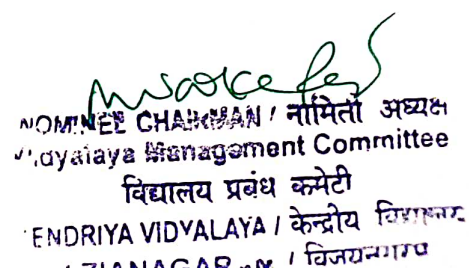 NOMINEE CHAIRMAN / नामिती अध्यक्ष
Vidyalaya Management Committee
विद्यालय प्रबंध कमेटी
ENDRIYA VIDYALAYA / केन्द्रीय विद्यालय
ZIANAGAR / विजयनगरम